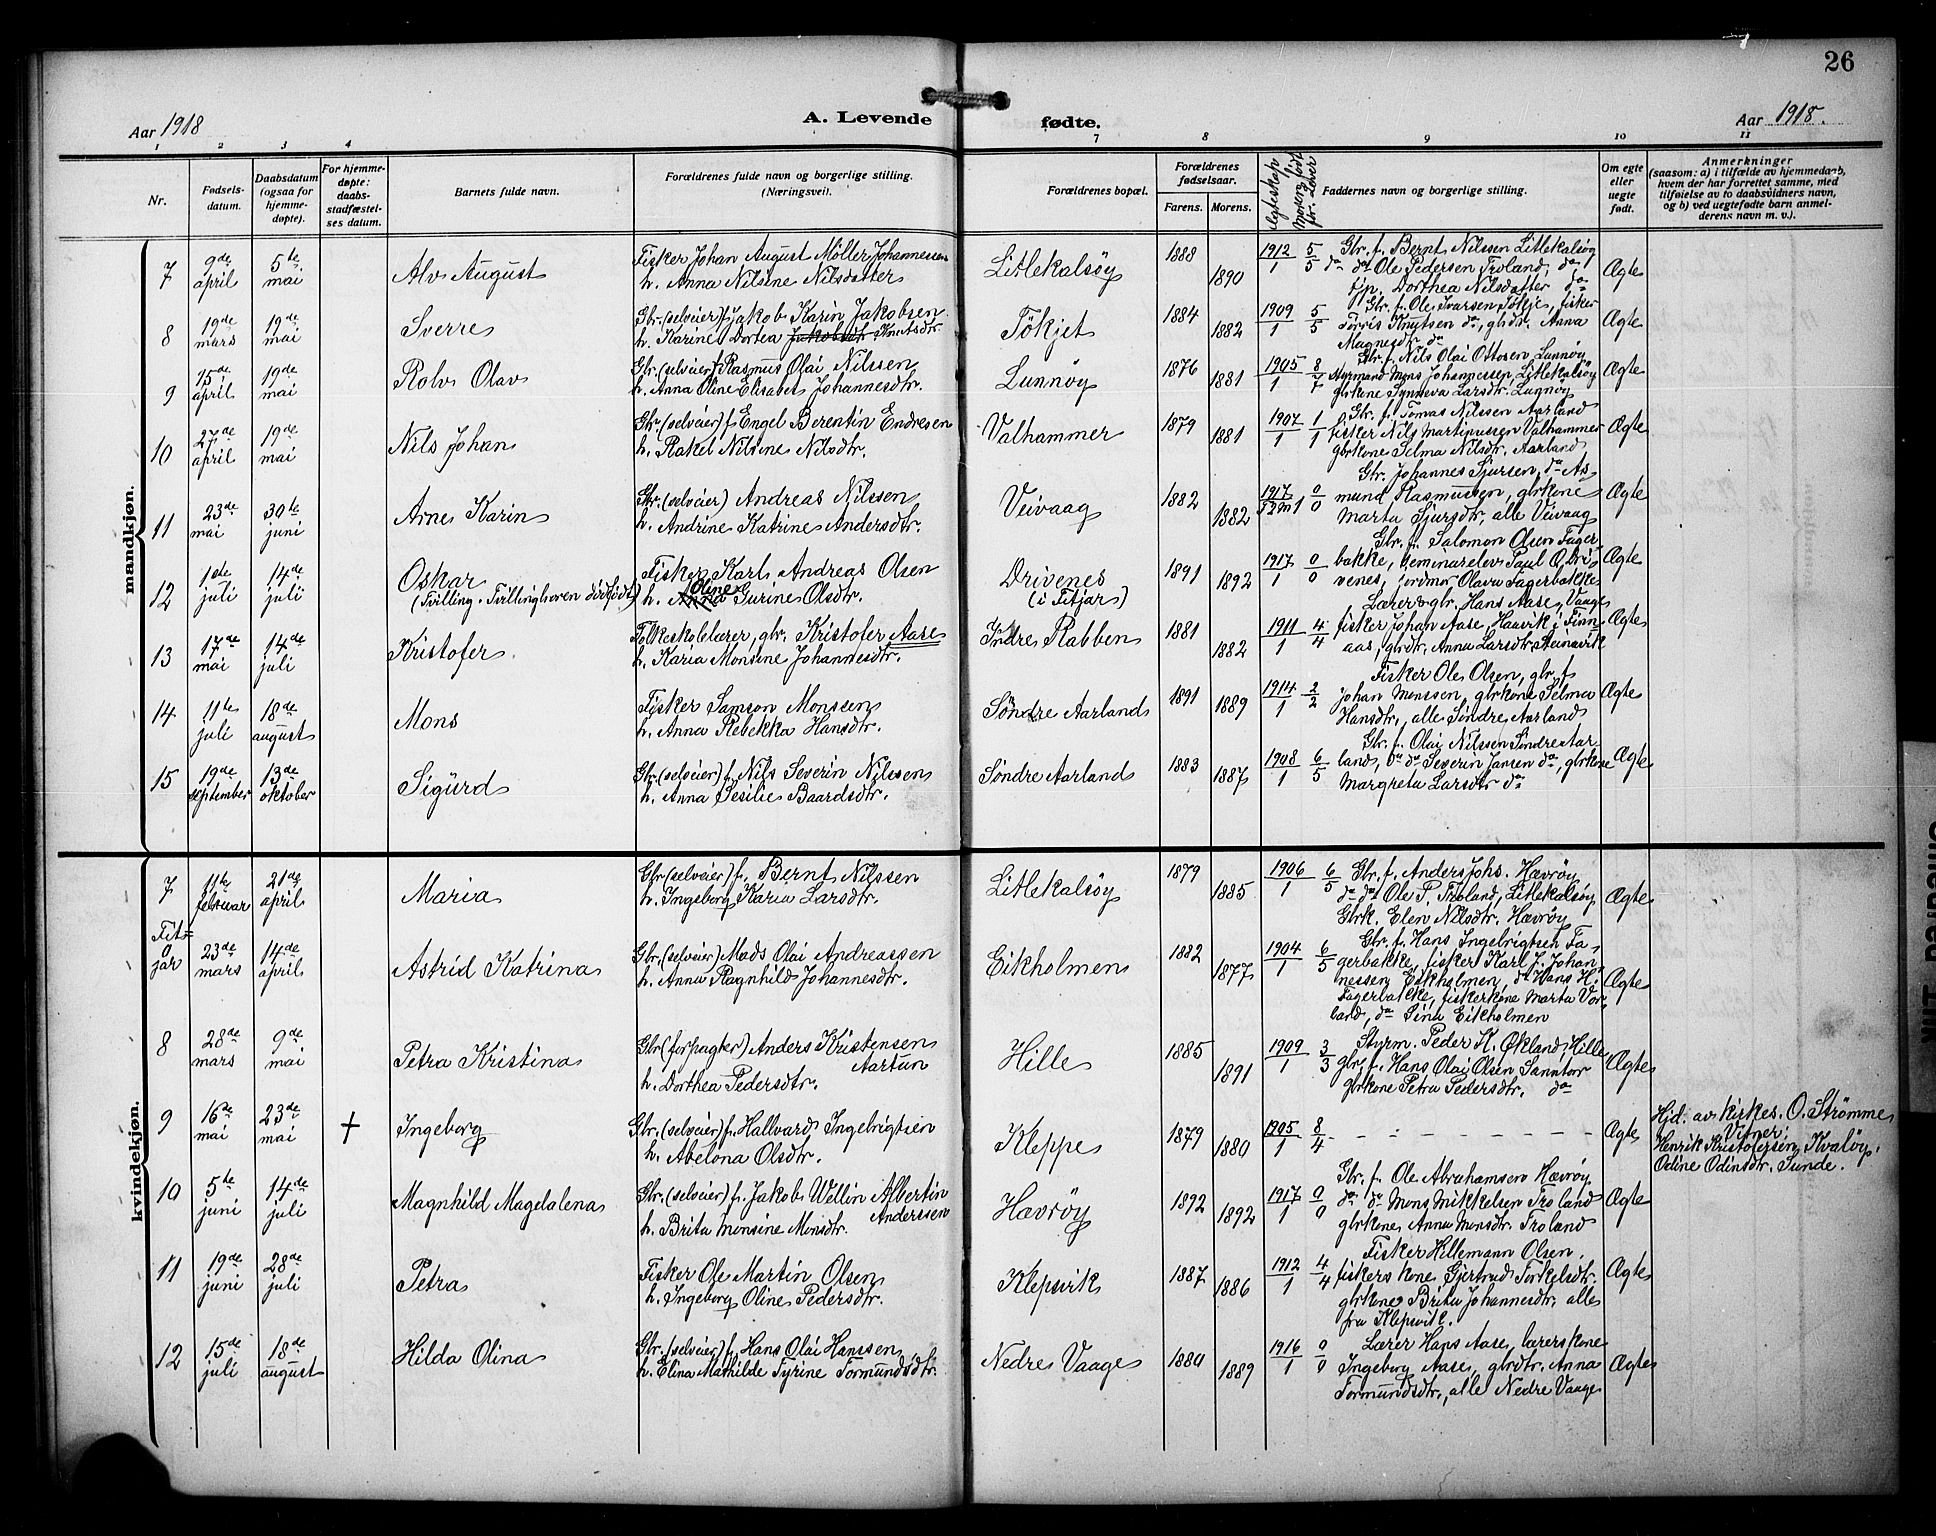 26
Aar 1918
A. Levende
fødte.
Aar 1918.
1 2 3 4 7 8 9 10 11
Nr.
Fødsels-
datum.
Daabsdatum
(ogsaa for
hjemme-
døpte).
For hjemme-
døpte:
daabs-
stadfæstel-
ses datum.
Barnets fulde navn.
Forældrenes fulde navn og borgerlige stilling.
(Næringsvei).
Forældrenes bopæl.
Forældrenes
fødselsaar.
Farens. Morens.
Faddernes navn og borgerlige stilling.
Om egte
eller
uegte
født.
Anmerkninger
(saasom: a) i tilfælde av hjemmedaab,
hvem der har forrettet samme, med
tilføielse av to daabsvidners navn,
og b) ved uegtefødte barn anmel-
derens navn m. v.).
mandkjøn.
7 9de april 5te mai Alv August
Fisker Johan August Möller Johannessen
h. Anna Nilsine Nilsdatter
Litlekalsöy 1888 1890 1912/1 5/5
Gbr. f. Bernt Nilssen Litlekalsöy
do do Ole Pedersen Troland, do
fp. Dorthea Nilsdatter do
Ægte
8 19de mars 19de mai Sverre
Gbr. (selveier) f. Jakob Karin Jakobsen
h. Karine Dortea Jakobsdtr. Knutsdtr
Tökjet 1884 1882 1909/1 5/5
Gbr. f. Ole Ivarsen Tökje, fisker
Torris Knutsen do, gbdtr. Anna
Magnesdtr do
Ægte
9 15de april 19de mai Rolv Olav
Gbr. (selveier) f. Rasmus Olai Nilssen
h. Anna Oline Elisabet Johannesdtr.
Lunnöy 1876 1881 1905/1 8/7
Gbr. f. Nils Olai Ottosen Lunnöy
styrmand Mons Johannessen, Litlekalsöy
gbrkone Synneva Larsdtr. Lunnöy
Ægte
10 27de april 19de mai Nils Johan
Gbr. (selveier) f. Engel Berentin Endresen
h. Rakel Nilsine Nilsdtr.
Valhammer 1879 1881 1907/1 1/1
Gbr. f. Tomas Nilssen Aarland
fisker Nils Martinussen Valhammer
gbrkone Selma Nilsdtr. Aarland
Ægte
11 23de mai 30te juni Arne Karin
Gbr. (selveier) Andreas Nilssen
h. Andrine Katrine Andersdtr.
Veivaag 1882 1882 1917 0/0
Gbr. Johannes Sjursen, do As
mund Rasmussen, gbrkone
Marta Sjursdtr, alle Veivaag
Ægte
12 1ste juli 14de juli Oskar
(Tvilling. Tvillingbroren dödfödt)
Fisker Karl Andreas Olsen
h. Anna Oline Gurine Olsdtr.
Drivenes
(i Fitjar)
1891 1892 1917/1 0/0
Gbr. f. Salomon Olsen Fager
bakke, seminarelev Paul O. Dri-
venes, jordmor Olava Fagerbakke
Ægte
13 17de mai 14de juli Kristofer
Folkeskolelærer, gbr. Kristofer Aase
h. Karia Monsine Johannesdtr.
Indre Rabben 1881 1882 1911/1 4/4
Lærer & gbr. Hans Aase, Vaage
fisker Johan Aase, Haavik i Finn
aas, gbrdtr. Anna Larsdtr Steinsvik
Ægte
14 11te juli 18de august Mons
Fisker Samson Monsen
h. Anna Rebekka Hansdtr.
Söndre Aarland 1891 1889 1914/1 2/2
Fisker Ole Olsen, gbr. f
Johan Monssen, gbrkone Selma
Hansdtr., alle Söndre Aarland
Ægte
15 19de september 13de oktober Sigurd
Gbr. (selveier) f. Nils Severin Nilssen
h. Anna Sesilie Baardsdtr.
Söndre Aarland 1883 1887 1908/1 6/5
Gbr. f. Olai Nilssen Söndre Aar
land, do do Severin Jansen do, gbrkone
Margreta Larsdtr do
Ægte
kvindekjøn.
7 11te februar 21de april Maria
Gbr (selveier) f. Bernt Nilssen
h. Ingeborg Karia Larsdtr.
Litlekalsöy 1879 1885 1906/1 6/5
Gbr. f. Anders Johs. Hævröy
do do Ole P. Troland, Litlekalsöy
Gbrk. Elen Nilsdtr. Hævröy
Ægte
Fit=
jar
23de mars 14de april Astrid Katrina
Gbr. (selveier) Mads Olai Andreassen
h. Anna Ragnhild Johannesdtr.
Eikholmen 1882 1877 1904/1 6/5
Gbr. f. Hans Ingebrigtsen Fa-
gerbakke, fisker Karl J. Johan
nessen Eikholmen, do Hans H.
Fagerbakke, fiskerkone Marta Vor
land, do Sina Eikholmen
Ægte
8 28de mars 9de mai Petra Kristina
Gbr (forpagter) Anders Kristensen
Aartun
h. Dorthea Pedersdtr.
Hille 1885 1891 1909/1 3/3
Styrm. Peder K. Økland, Hille
gbr. f. Hans Olai Olsen, Sanntor
gbrkone Petra Pedersdtr. do
Ægte
9 16de mai 23de mai + Ingeborg
Gbr. (selveier) f. Hallvard Ingebrigtsen
h. Abelona Olsdtr.
Kleppe 1879 1880 1905/1 8/4
– – – – – – – –
Ægte
Hjd. av kirkes. O. Strömme
Vitner:
Henrik Kristofersen, Kvalöy,
Odine Odinsdtr. Sunde.
10 5te juni 14de juli Magnhild Magdalena
Gbr. (selveier) f. Jakob Wellin Albertin
Anderssen
h. Brita Monsine Monsdtr.
Hævröy 1892 1892 1917/1 0/0
Gbr. f. Ole Abrahamsen Hævröy
do do Mons Mikkelsen Troland
gbrkone Anna Monsdtr. Troland
Ægte
11 19de juni 28de juli Petra
Fisker Ole Martin Olsen
h. Ingeborg Oline Pedersdtr.
Klepsvik 1887 1886 1912/1 4/4
Fisker Hillemann Olsen,
fiskers kone Gjertrud Torkelsdtr.
gbrkone Brita Johannesdtr. alle
fra Klepsvik.
Ægte
12 15de juli 18de august Hilda Olina
Gbr. (selveier) f. Hans Olai Hanssen
h. Elina Mathilde Tyrine Tormundsdtr.
Nedre Vaage 1880 1889 1916/1 0/0
Lærer Hans Aase, lærerskone
Ingeborg Aase, gbrdtr. Anna
Tormundsdtr., alle Nedre Vaage
Ægte